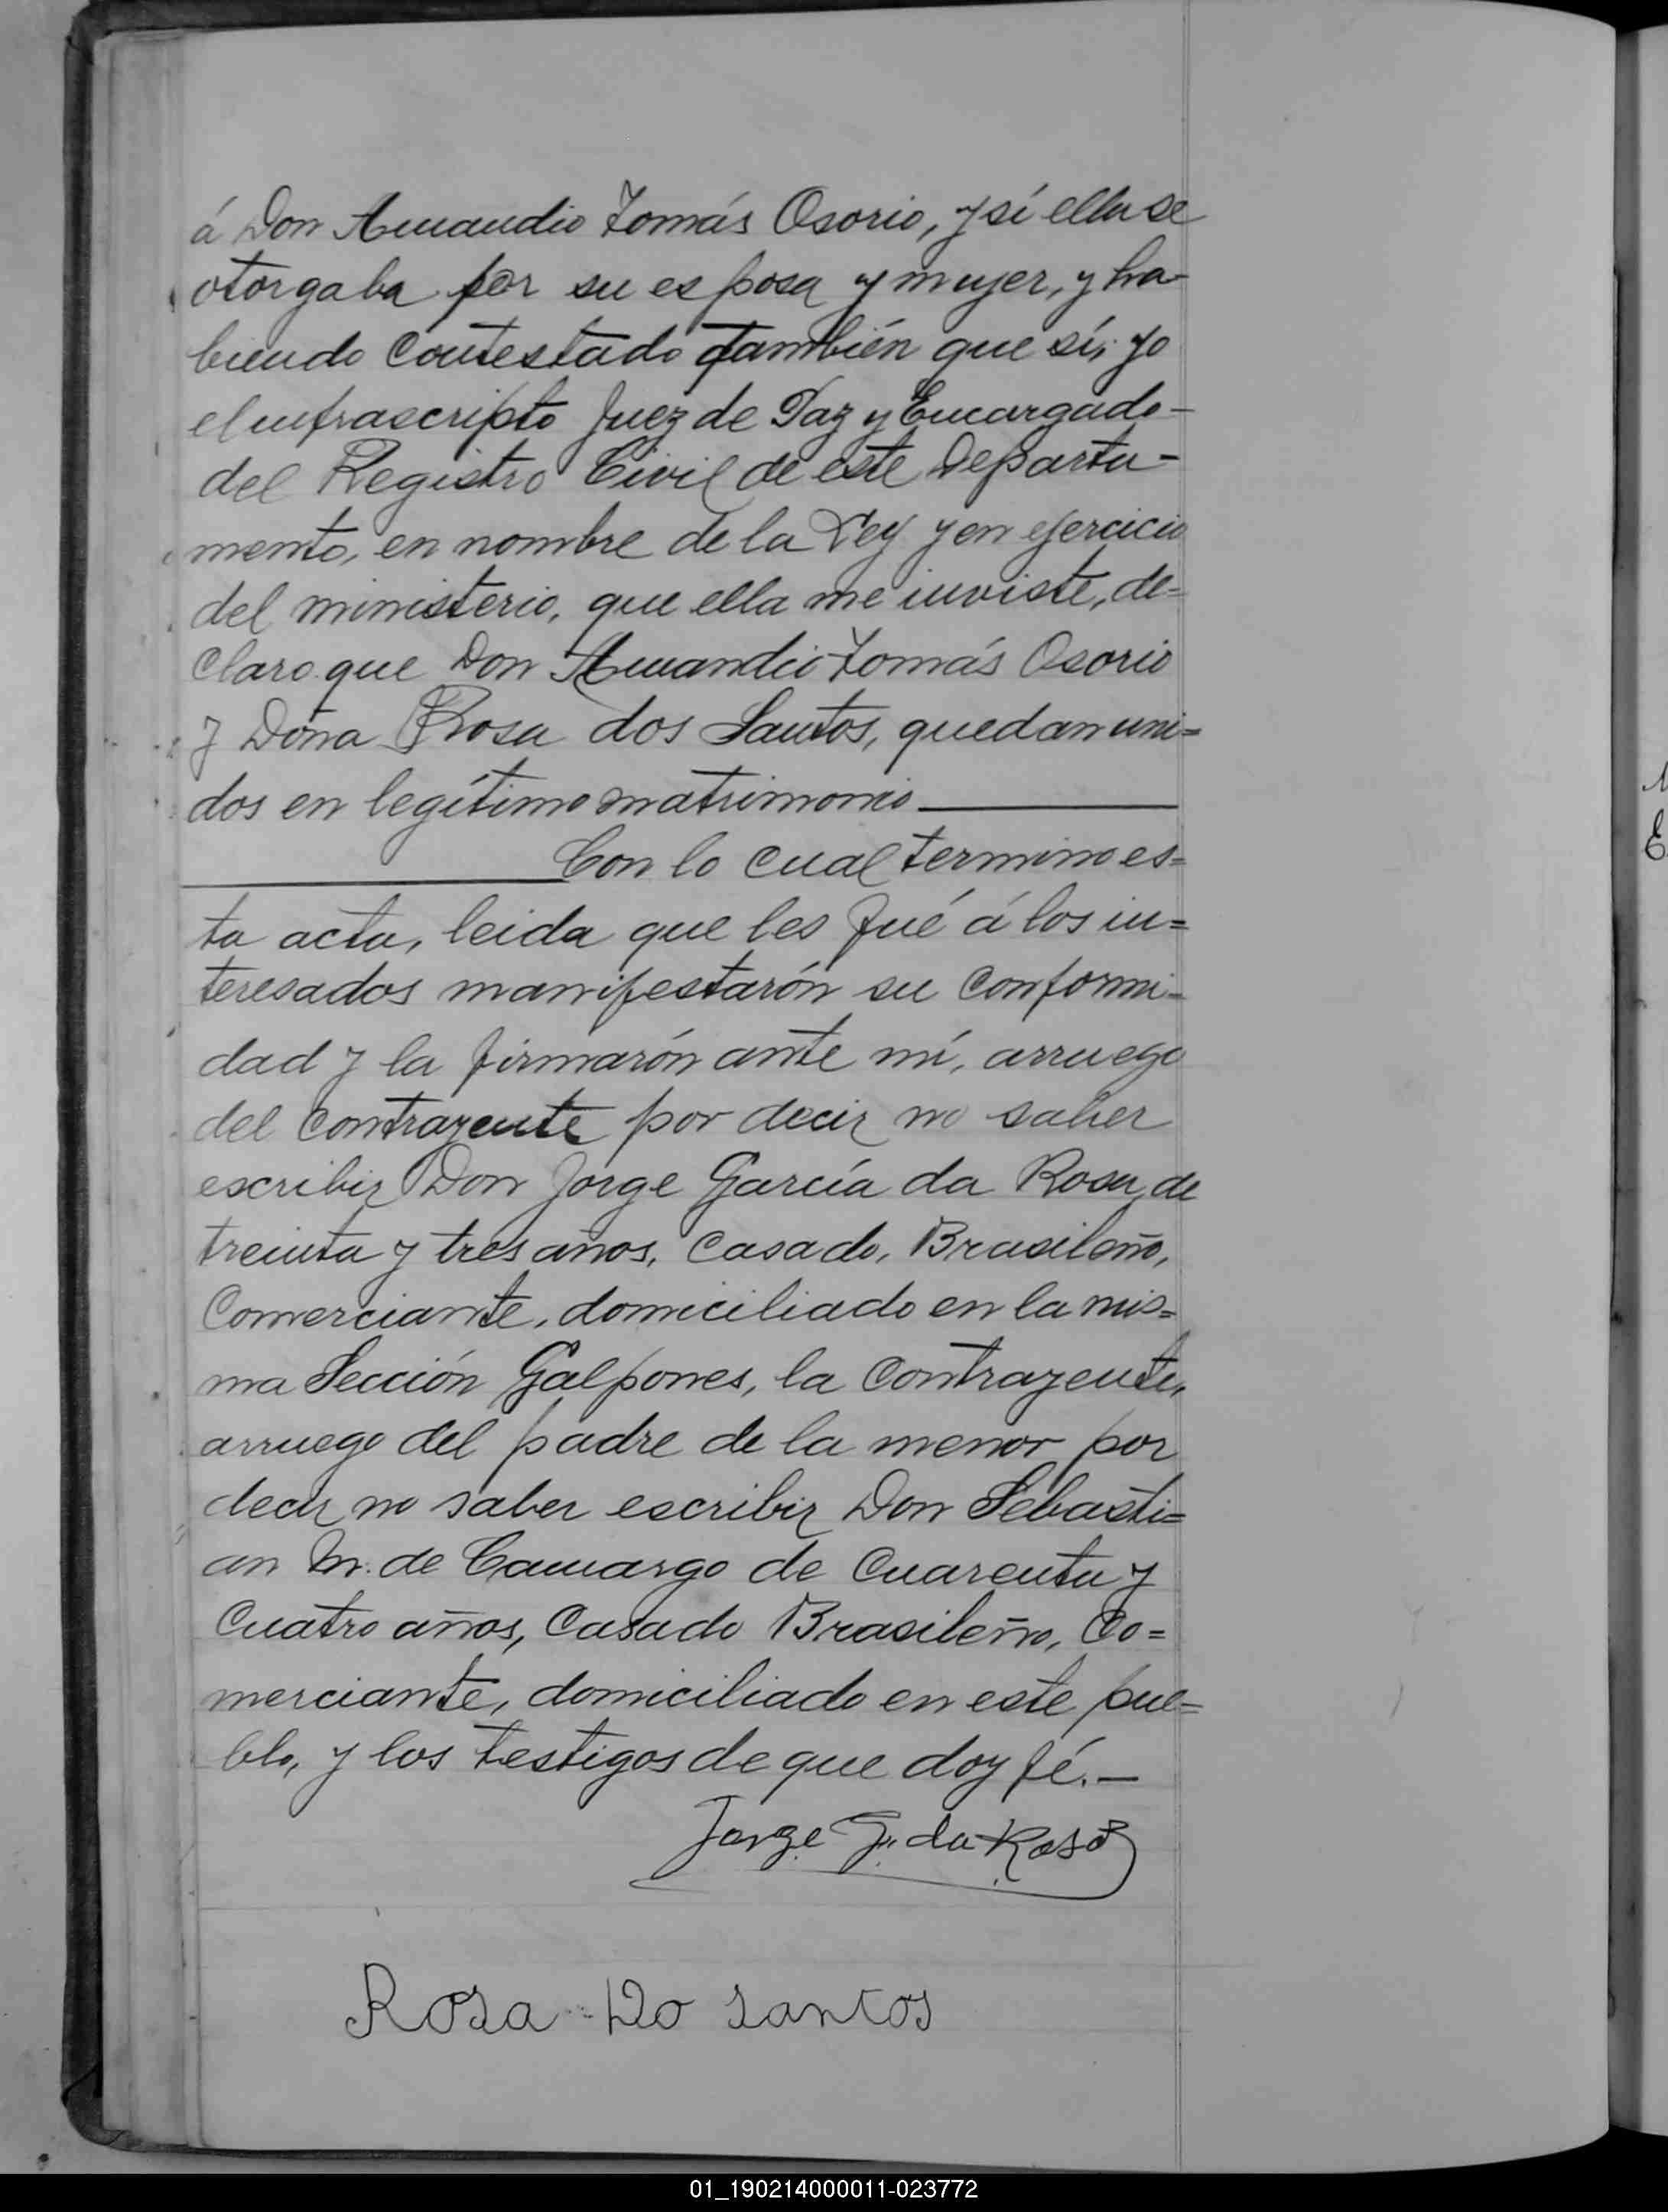 á Don Amandio Tomás Osorio, y sí ella se
otorgaba por su esposa y mujer, y ha-
biendo contestado también que sí; yo
el infrascripto Juez de Paz y Encargado-
del Registro Civil de este Departa-
mento, en nombre de la Ley y en ejercicio
del ministerio, que ella me inviste, de=
claro que Don Amandio Tomás Osorio
y Doña Rosa dos Santos, quedan uni=
dos en legítimo matrimonio
Con lo cual termino es=
ta acta, leida que les fué á los in=
teresados manifestarón su conformi=
dad y la firmarón ante mí, arruego
del contrayente por decir no saber
escribir Don Jorge García da Rosa, de
treinta y tres años, Casado, Brasileño,
Comerciante, domiciliado en la mis=
ma Sección Galpones, la contrayente,
arruego del padre de la menor por
decir no saber escribir Don Sebasti=
an M. de Camargo de cuarenta y
cuatro años, Casado Brasileño, Co=
merciante, domiciliado en este pue=
blo, y los testigos de que doy fé.—
Jorge G. da Rosa
Rosa Do santos
01_190214000011-023772